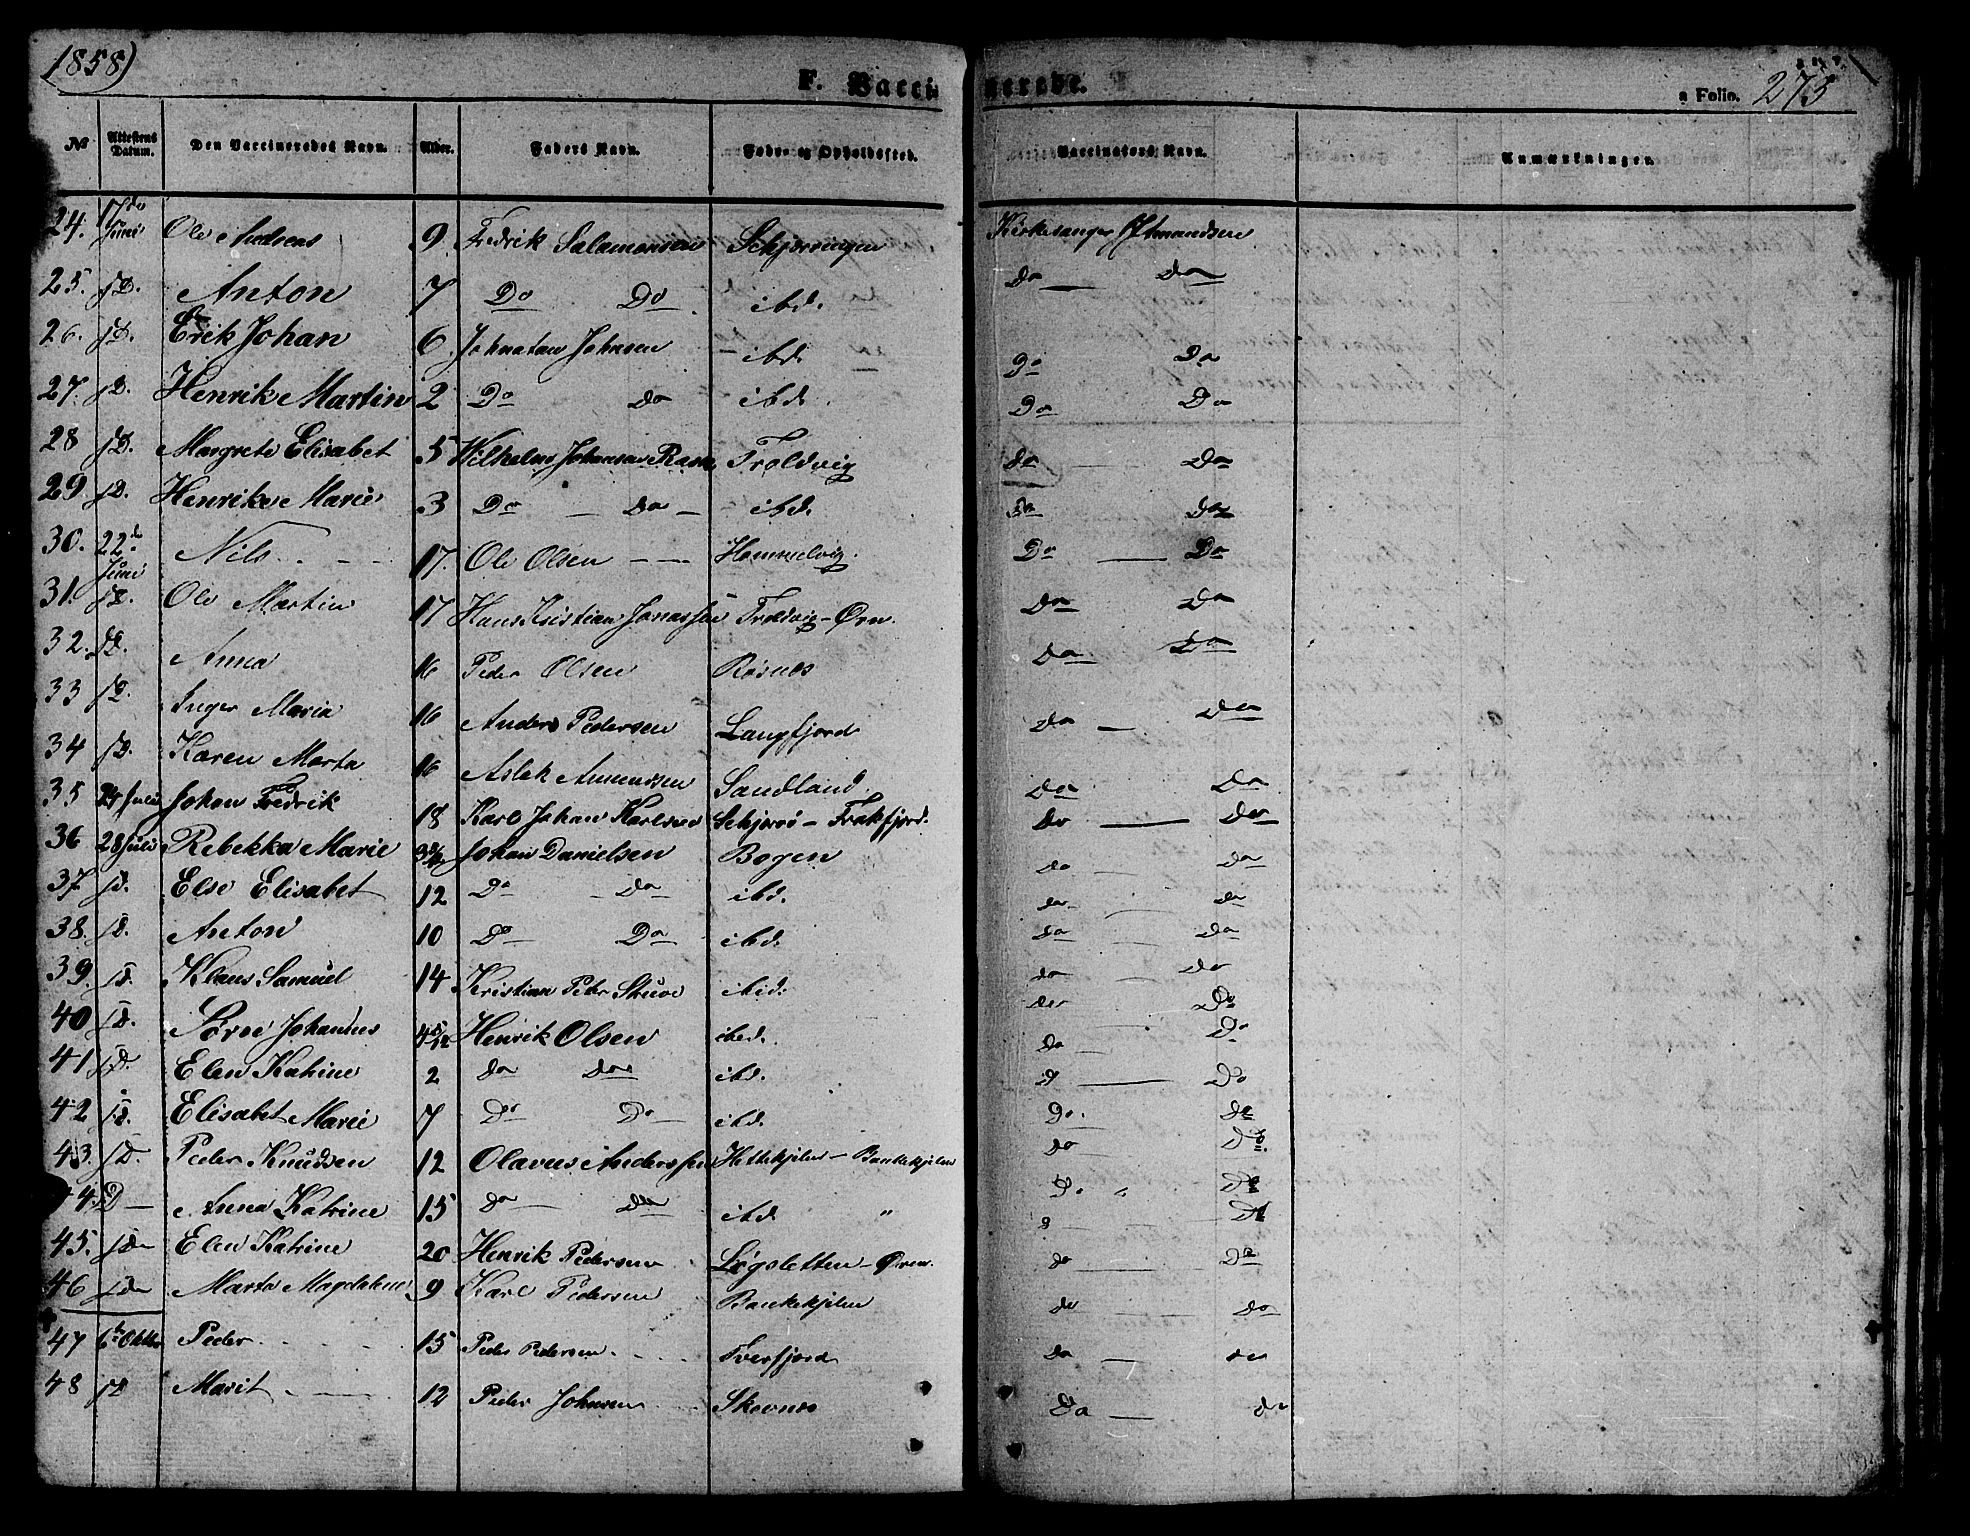 1858)
F. Vaccinerede.
a Folio. 273
No Attestens Datum. Den Vaccineredes Navn. Alder. Faders Navn. Føde- og Opholdssted. Vaccinators Navn. Anmærkninger.
24. 17de Juni Ole Andreas 9 Fedrik Salamonsen Schjervingen Kirkesanger Amandsen
25. sD. Anton 7 Do Do ibd. Do Do
26. sD. Erik Johan 6 Johnatan Johnsen ibd. Do Do
27. sD. Henrik Martin 2 Do do ibd. Do Do
28 sD. Margrete Elisabet 5 Wilhelm Johansen Troldvig do Do
29. sD. Henrike Marie 3 Do Do ibd. Do Do
30. 22de Juni Nils 17. Ole Olsen Hammelvig. Do Do
31. sD. Ole Martin 17 Hans Kristian Jonassen Troldvig - Ørn. Do Do
32. sD. Anna 16 Peder Olsen Røsnes Do Do
33 sD. Inger Maria 16 Anders Pedersen Langfjord Do Do
34 sD. Karen Marta 16 Aslek Amundsen Sandland. Do Do
35 24 Juli Johan Fredrik 18 Karl Johan Karlsen Schjerø - Frakfjord. Do Do
36 28 Juli Rebekka Marie 3 Johan Danielsen Bogen do do
37. sD. Else Elisabet 12 Do Do ibd. do do
38. sD. Anton 10 Do Do ibd. do do
39. sD. Klaus Samuel 14 Kristian Peder Struve ibid. do do
40 sD. Søren Johannes 4 5/12 Henrik Olsen ibd. do Do
41 sD. Elen Katrine 2 do do ibd. do Do
42 sD. Elisabet Marie 7 Do Do ibd. do Do
43. sD. Peder Knudsen 12 Olavus Anderssen Hettekjelen - Bankekjelen do Do
44. sD Anna Katrine 15 do do ibd. " Do Do
45. sD Elen Katrine 20 Henrik Pedersen Løgsletten - Øren. do Do
46 sD Marta Magdalene 9 Karl Pedersen Bankekjelen do do
47 6te Oktbr Peder 15 Peder Pedersen Tverfjord do do
48 sD Marit 12 Peder Johnsen Skevnes Do do